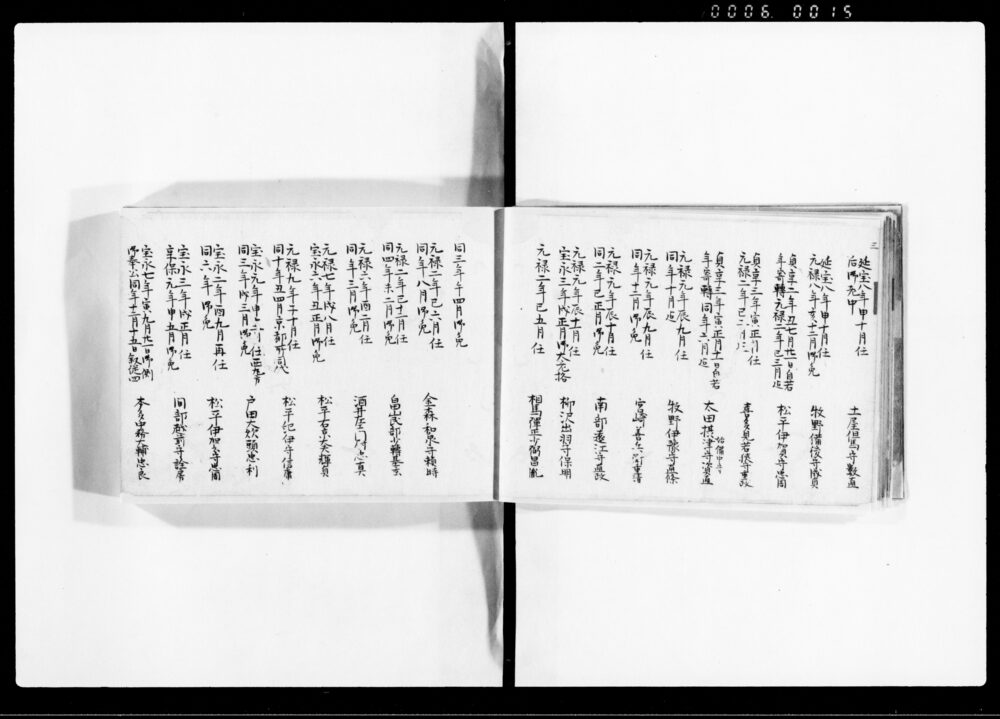 0006.0015
三
延宝八年申十月任
后御老中
土屋相馬守数直
延宝八年申十月任
元禄八年亥十二月御免
牧野備後守成貞
貞享二年丑七月廿一日自若
年寄轉元禄二年巳三月迄
松平伊賀守忠周
貞享三年寅正月任
元禄二年巳二月迄
喜多見若狭守重政
貞享三年寅正月十一日自若
年寄轉同年六月迄
始備中守
太田摂津守資直
元禄元年辰九月任
同年十月迄
牧野伊豫守直條
元禄元年辰九月任
同年十二月御免
宮崎善兵衛重清
元禄元年辰十月任
同二年巳正月御免
南部遠江守直政
元禄元年辰十一月任
宝永三年戌正月御大老格
柳沢出羽守保明
元禄二年巳五月任
相馬弾正少弼昌胤
同三年午四月御免
元禄二年巳六月任
同年八月御免
金森和泉守頼時
元禄二年巳十一月任
同四年未二月御免
畠山民部少輔基玄
元禄六年酉二月任
同年三月御免
酒井左衛門尉忠真
元禄七年戌八月任
宝永六年丑正月御免
松平右京大夫輝貞
元禄九年子十月任
同十年丑四月京都所司
松平紀伊守信庸
宝永元年申十二月任西丸
同三年戌三月御免
戸田大炊頭忠利
宝永二年酉九月再任
同六年御免
松平伊賀守忠周
宝永三年戌正月任
享保元年申五月御免
間部越前守詮房
宝永七年寅九月廿一日御側
御奉公同年十二月十五日叙従四
本多中務大輔忠良